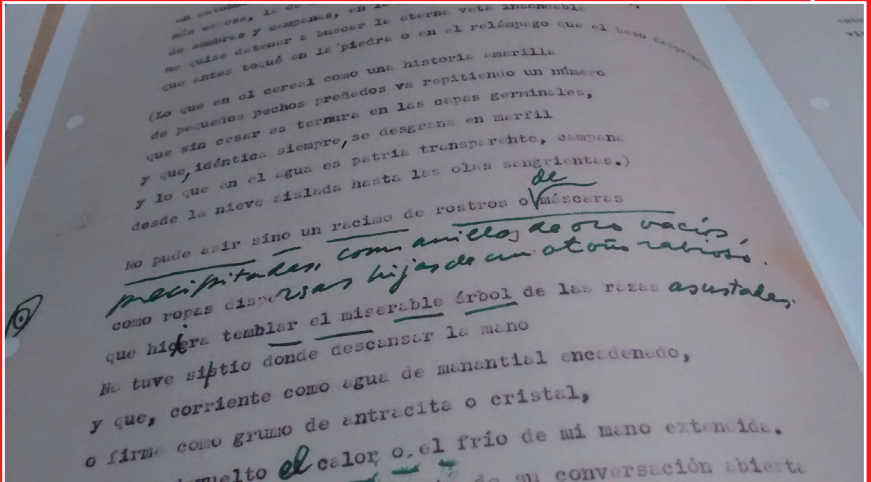 más espesa, la de
de sombras y campanas, en
me quise detener a buscar la eterna veta insondable
que antes toqué en la piedra o en el relámpago que el beso desprendía
(Lo que en el cereal como una historia amarilla
de pequeños pechos preñados va repitiendo un número
que sin cesar es ternura en las capas germinales,
y que, idéntica siempre, se desgrana en marfil
y lo que en el agua es patria transparente, campana
desde la nieve aislada hasta las olas sangrientas.)
No pude asir sino un racimo de rostros o de máscaras
precipitadas, como anillos de oro vacío,
como ropas dispersas hijas de un otoño rabioso.
que hiciera temblar el miserable árbol de las razas asustadas.
No tuve sitio donde descansar la mano
y que, corriente como agua de manantial encadenado,
o firme como grumo de antracita o cristal,
uelto el calor o el frío de mi mano extendida.
de su conversación abierta